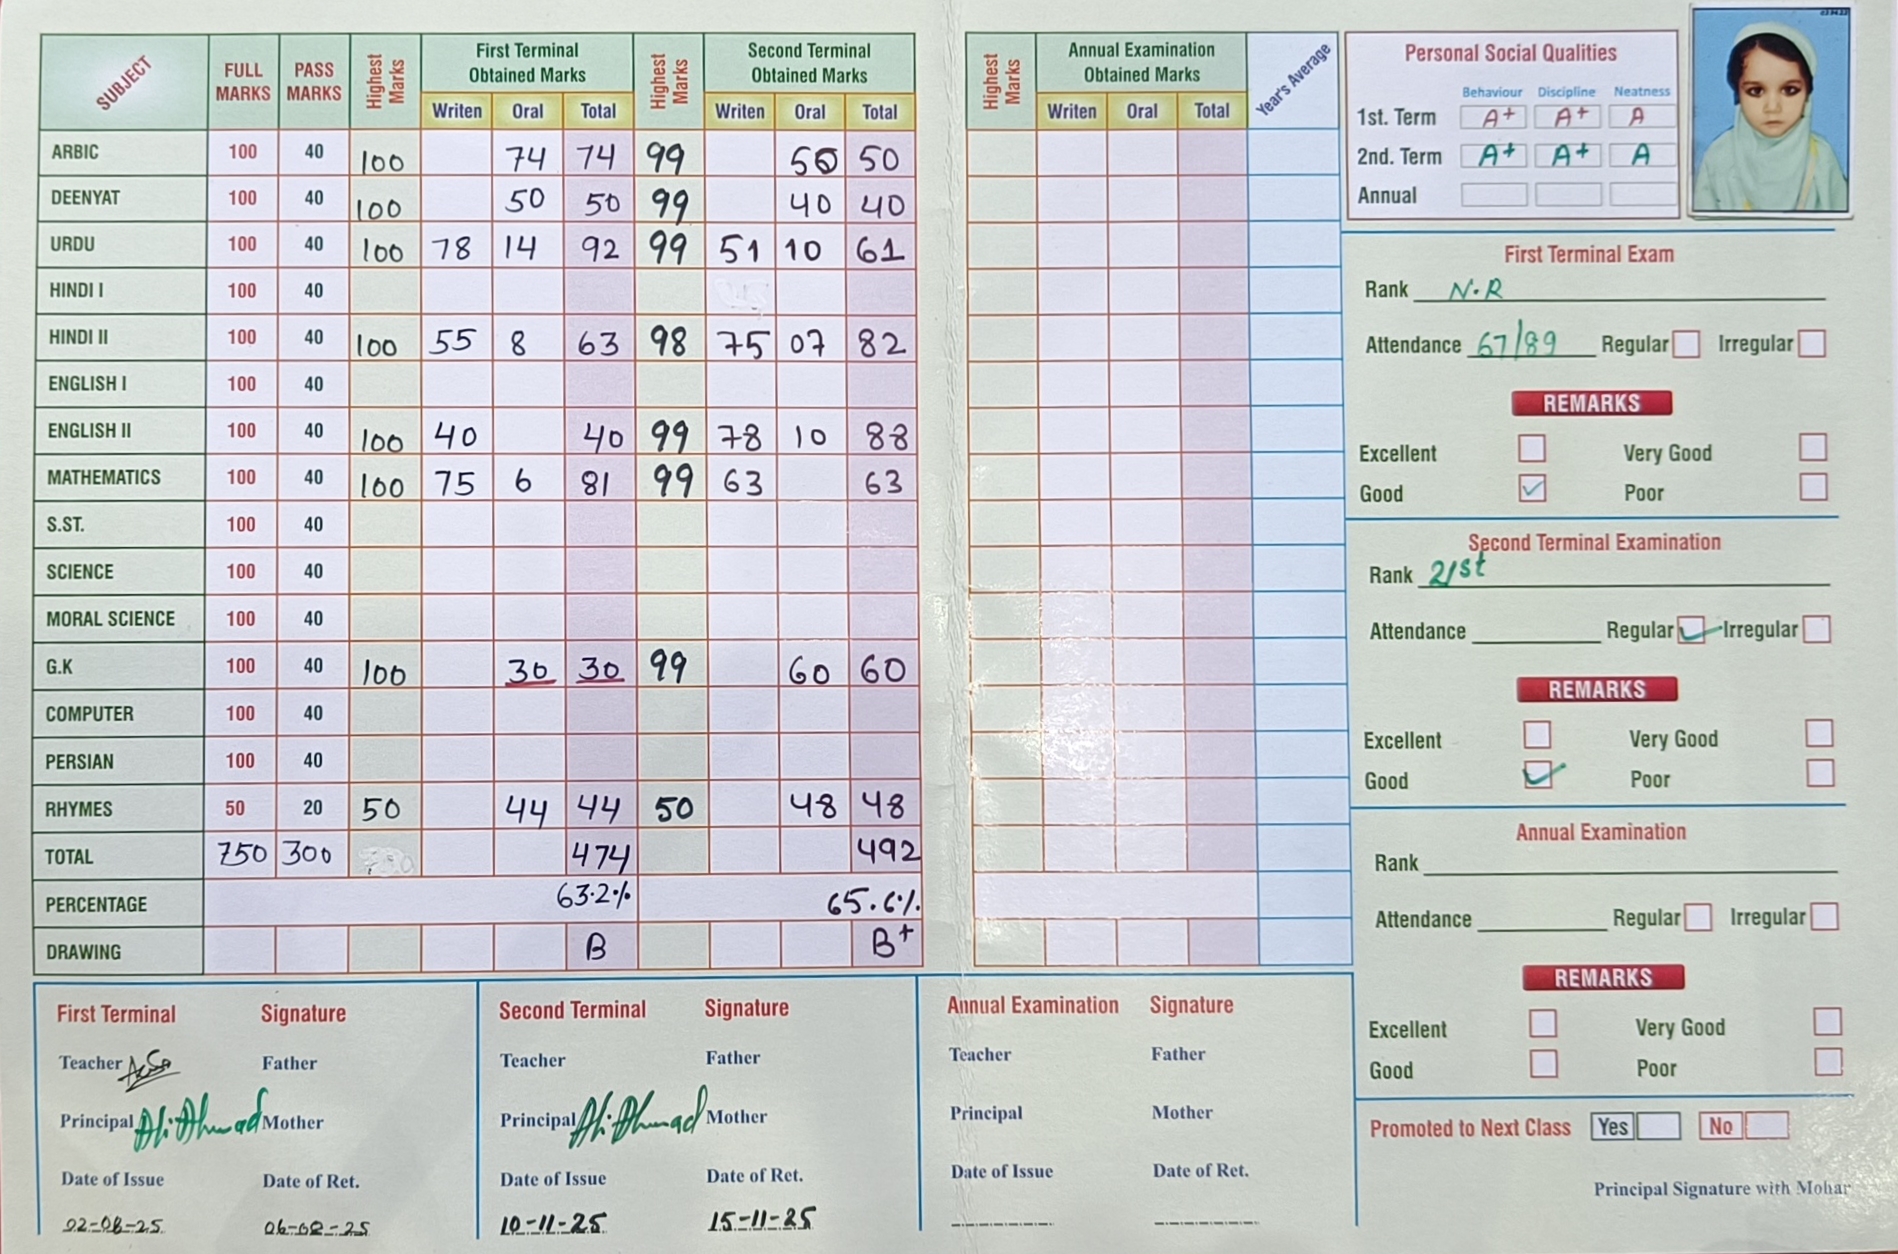 SUBJECT FULL MARKS PASS MARKS Highest Marks First Terminal Obtained Marks Highest Marks Second Terminal Obtained Marks
Writen Oral Total Writen Oral Total
ARBIC 100 40 100 74 74 99 50 50
DEENYAT 100 40 100 50 50 99 40 40
URDU 100 40 100 78 14 92 99 51 10 61
HINDI I 100 40
HINDI II 100 40 100 55 8 63 98 75 07 82
ENGLISH I 100 40
ENGLISH II 100 40 100 40 40 99 78 10 88
MATHEMATICS 100 40 100 75 6 81 99 63 63
S.ST. 100 40
SCIENCE 100 40
MORAL SCIENCE 100 40
G.K 100 40 100 30 30 99 60 60
COMPUTER 100 40
PERSIAN 100 40
RHYMES 50 20 50 44 44 50 48 48
TOTAL 750 300 474 492
PERCENTAGE 63.2% 65.6%
DRAWING B B+
Highest Marks Annual Examination Obtained Marks Year's Average
Writen Oral Total
Personal Social Qualities
Behaviour Discipline Neatness
1st. Term A+ A+ A
2nd. Term A+ A+ A
Annual
First Terminal Exam
Rank N.R
Attendance 67/89 Regular Irregular
REMARKS
Excellent Very Good
Good Poor
Second Terminal Examination
Rank 21st
Attendance Regular Irregular
REMARKS
Excellent Very Good
Good Poor
Annual Examination
Rank
Attendance Regular Irregular
REMARKS
Excellent Very Good
Good Poor
Promoted to Next Class Yes No
Principal Signature with Mohar
First Terminal Signature
Teacher Father
Principal Ali Ahmad Mother
Date of Issue Date of Ret.
02-08-25 06-08-25
Second Terminal Signature
Teacher Father
Principal Ali Ahmad Mother
Date of Issue Date of Ret.
10-11-25 15-11-25
Annual Examination Signature
Teacher Father
Principal Mother
Date of Issue Date of Ret.